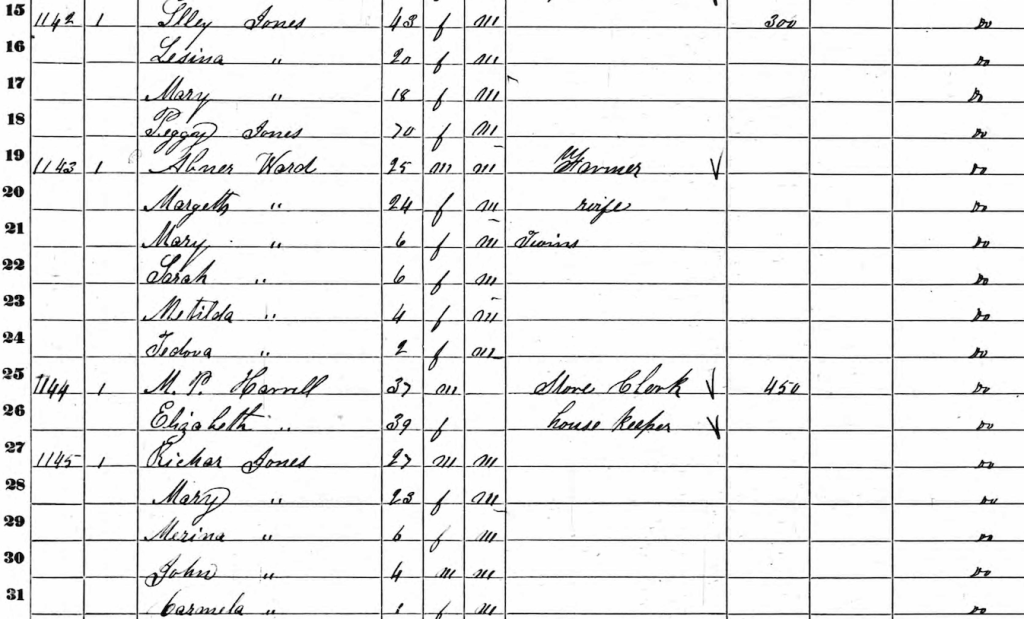 15 1142 1 Jones 43 f m 300 Do
16 Lesina " 20 f m Do
17 Mary " 18 f m Do
18 Peggy Jones 70 f m Do
19 1143 1 Abner Ward 25 m m Farmer V Do
20 Margeth " 24 f m wife Do
21 Mary " 6 f m Twins Do
22 Sarah " 6 f m Do
23 Metilda " 4 f m Do
24 Fedova " 2 f m Do
25 1144 1 M. P. Harrell 37 m Store Clerk V 450 Do
26 Elizabeth " 39 f house keeper V Do
27 1145 1 Richar Jones 27 m m Do
28 Mary " 23 f m Do
29 Merina " 6 f m Do
30 John " 4 m m Do
31 Carmela " 1 f m Do